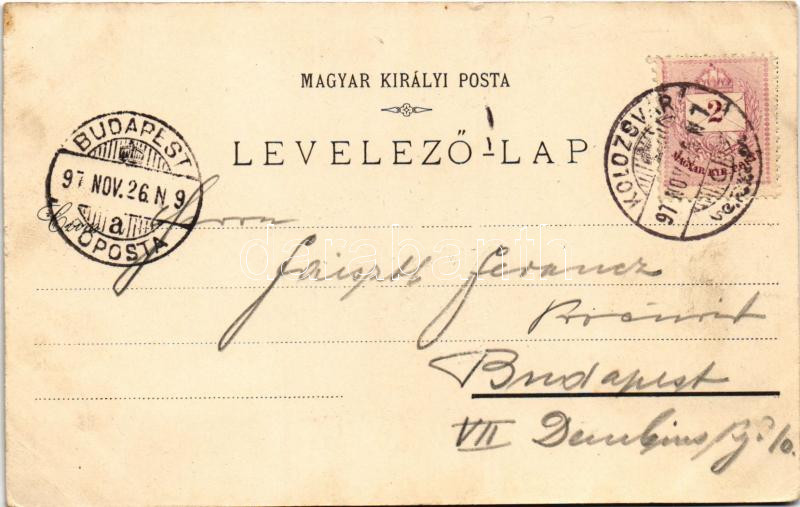 MAGYAR KIRÁLYI POSTA
LEVELEZŐ-LAP
BUDAPEST
97 NOV. 26. N 9
a
FŐPOSTA
KOLOZSVÁR
97 NOV. N 7
2
MAGYAR KIR. POSTA
Herrn
Faiszth Ferencz
Budapest
VII
darabanth